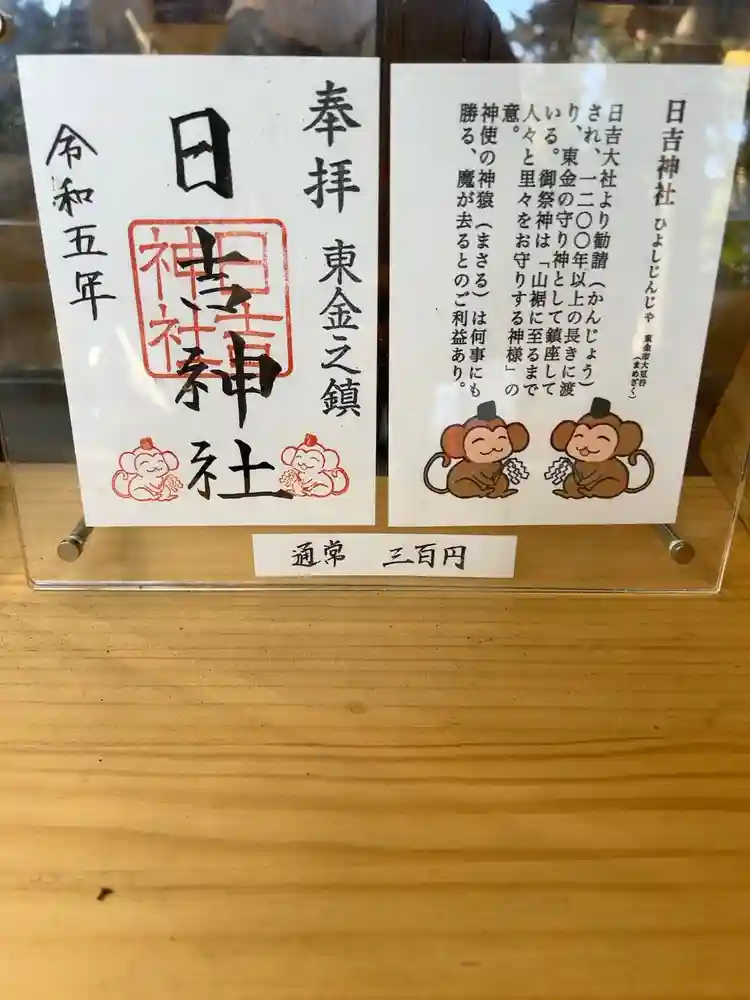 奉拝
東金之鎮
日吉神社
日吉
神社
令和五年
日吉神社 ひよしじんじゃ
東金市大豆谷
(まめざく)
日吉大社より勧請(かんじょう)
され、一二〇〇年以上の長きに渡
り、東金の守り神として鎮座して
いる。御祭神は「山裾に至るまで
人々と里々をお守りする神様」の
意。
神使の神猿(まさる)は何事にも
勝る、魔が去るとのご利益あり。
通常 三百円